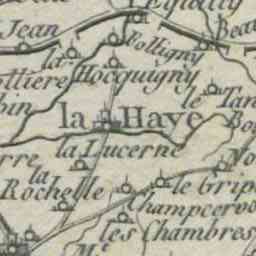 Jean
l'Equilly
Folligny
Beau
la
ttiere
Hocquigny
le
Tan
bin
la Haye
Bo
la Lucerne
rre
la
No
Rochelle
le Grip
Champcervo
les Chambres
M.e